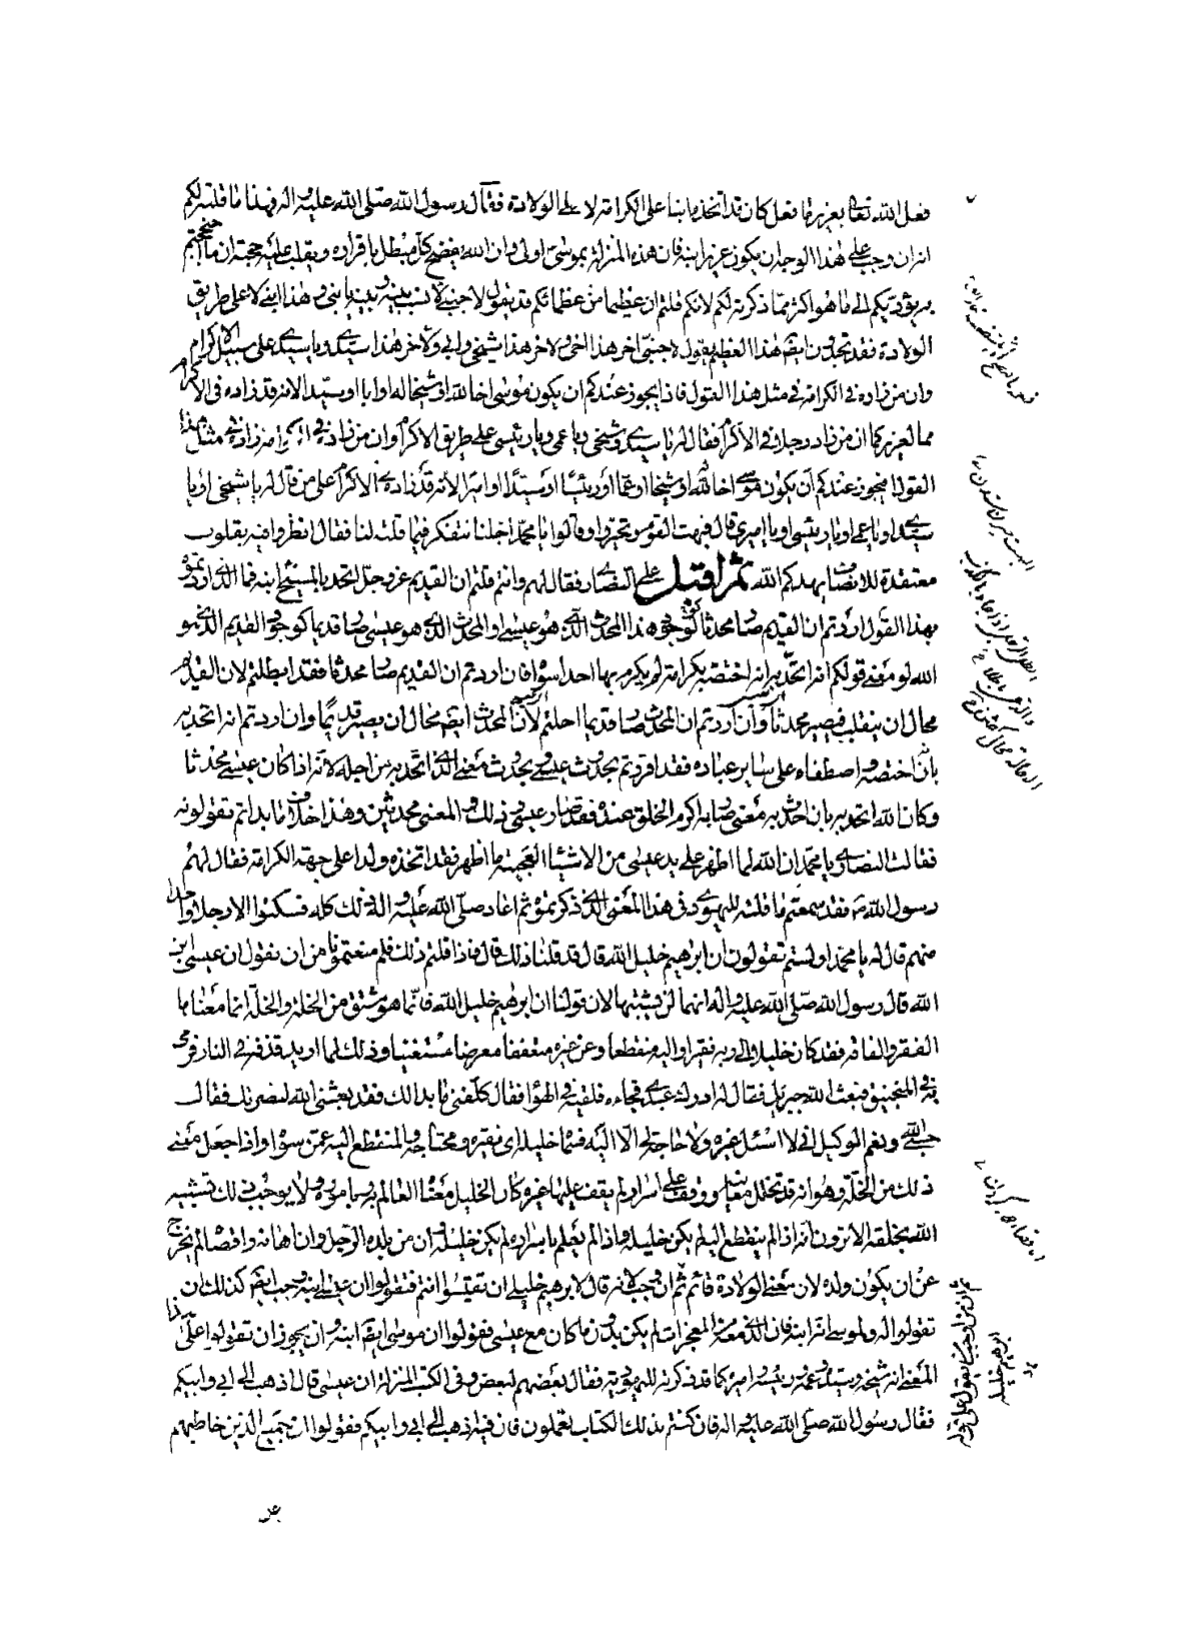 فعل الله تعالى بعزير ما فعل كان قد اتخذه ابنا على الكرامة لا على الولادة فقال رسول الله صلى الله عليه واله فهذا ما قلته لكم
انه ان وجب على هذا الوجه ان يكون عزير ابنه فان هذه المنزلة بموسى اولى وان الله يفضح كل مبطل باقراره ويقلب عليه حجته ان ما احتججتم
به يؤديكم الى ما هو اكثر مما ذكرته لكم لانكم قلتم ان عظيما من عظمائكم قد يقول لاجنبي لا نسب بينه وبينه يا بني وهذا ابني لا على طريق
الولادة فقد تجدون ايضا هذا العظيم يقول لاجنبي اخر هذا اخي ولاخر هذا شيخي وابي ولاخر هذا سيدي ويا سيدي على سبيل الاكرام
وان من زاده في الكرامة في مثل هذا القول فاذا يجوز عندكم ان يكون موسى اخا لله او شيخا له او ابا او سيدا لانه قد زاده في الاكرام
مما لعزير كما ان من زاد رجلا في الاكرام فقال له يا سيدي ويا شيخي ويا عمي ويا رئيسي على طريق الاكرام وان من زاده في زاده في مثل هذا
القول افيجوز عندكم ان يكون موسى اخا لله او شيخا او عما او رئيسا او سيدا او اميرا لانه قد زاده في الاكرام على من قال له يا شيخي او يا
سيدي او يا عمي او يا رئيسي او يا اميري قال فبهت القوم وتحيروا وقالوا يا محمد اجلنا نتفكر فيما قلته لنا فقال انظروا فيه بقلوب
معتقدة للانصاف يهدكم الله ثم اقبل على النصارى فقال لهم وانتم قلتم ان القديم عز وجل اتحد بالمسيح ابنه فما الذي اردتموه
بهذا القول اردتم ان القديم صار محدثا لوجود هذا المحدث الذي هو عيسى او المحدث الذي هو عيسى صار قديما لوجود القديم الذي هو
الله او معنى قولكم انه اتحد به انه اختصه بكرامة لم يكرم بها احدا سواه فان اردتم ان القديم صار محدثا فقد ابطلتم لان القديم
محال ان ينقلب فيصير محدثا وان اردتم ان المحدث صار قديما احلتم لان المحدث ايضا محال ان يصير قديما وان اردتم انه اتحد به
بان اختصه واصطفاه على سائر عباده فقد اقررتم بحدوث عيسى وبحدوث معنى الذي اتحد به من اجله لانه اذا كان عيسى محدثا
وكان الله اتحد به بان احدث به معنى صار به اكرم الخلق عنده فقد صار عيسى وذلك المعنى محدثين وهذا خلاف ما بداتم تقولونه
فقالت النصارى يا محمد ان الله لما اظهر على يد عيسى من الاشياء العجيبة ما اظهر فقد اتخذه ولدا على جهة الكرامة فقال لهم
رسول الله ص فقد سمعتم ما قلته لليهود في هذا المعنى الذي ذكرتموه ثم اعاد صلى الله عليه واله ذلك كله فسكتوا الا رجلا واحدا
منهم قال له يا محمد اولستم تقولون ان ابرهيم خليل الله قال قد قلنا ذلك قال فاذا قلتم ذلك فلم منعتمونا من ان نقول ان عيسى ابن
الله قال رسول الله صلى الله عليه واله انهما لن يشتبها لان قولنا ان ابرهيم خليل الله فانما هو مشتق من الخلة والخلة انما معناها
الفقر والفاقة فقد كان خليلا الى ربه فقيرا واليه منقطعا وعن غيره متعففا معرضا مستغنيا وذلك لما اريد قذفه في النار فرمي
به في المنجنيق فبعث الله جبريل فقال له ادرك عبدي فجاءه فلقيه في الهواء فقال كلفني ما بدا لك فقد بعثني الله لنصرتك فقال
حسبي الله ونعم الوكيل اني لا اسئل غيره ولا حاجة لي الا اليه فسماه خليله اي فقيره ومحتاجه والمنقطع اليه عمن سواه واذا جعل معنى
ذلك من الخلة وهو انه قد تخلل معانيه ووقف على اسرار لم يقف عليها غيره كان الخليل معناه العالم به وباموره ولا يوجب ذلك تشبيه
الله بخلقه الا ترون انه اذا لم ينقطع اليه لم يكن خليله واذا لم يعلم باسراره لم يكن خليله وان من يلده الرجل وان اهانه واقصاه لم يخرج
عن ان يكون ولده لان معنى الولادة قائم ثم ان وجب لانه قال لابرهيم خليلي ان تقيسوا انتم فتقولوا ان عيسى ابنه وجب ايضا كذلك ان
تقولوا له ولموسى انه ابنه فان الذي معه من المعجزات لم يكن بدون ما كان مع عيسى فقولوا ان موسى ايضا ابنه وان يجوز ان تقولوا على هذا
المعنى انه شيخه وسيده وعمه ورئيسه واميره كما قد ذكرته لليهود فقال بعضهم لبعض وفي الكتب المنزلة ان عيسى قال اذهب الى ابي وابيكم
فقال رسول الله صلى الله عليه واله فان كنتم بذلك الكتاب تعملون فان فيه اذهب الى ابي وابيكم فقولوا ان جميع الذين خاطبهم